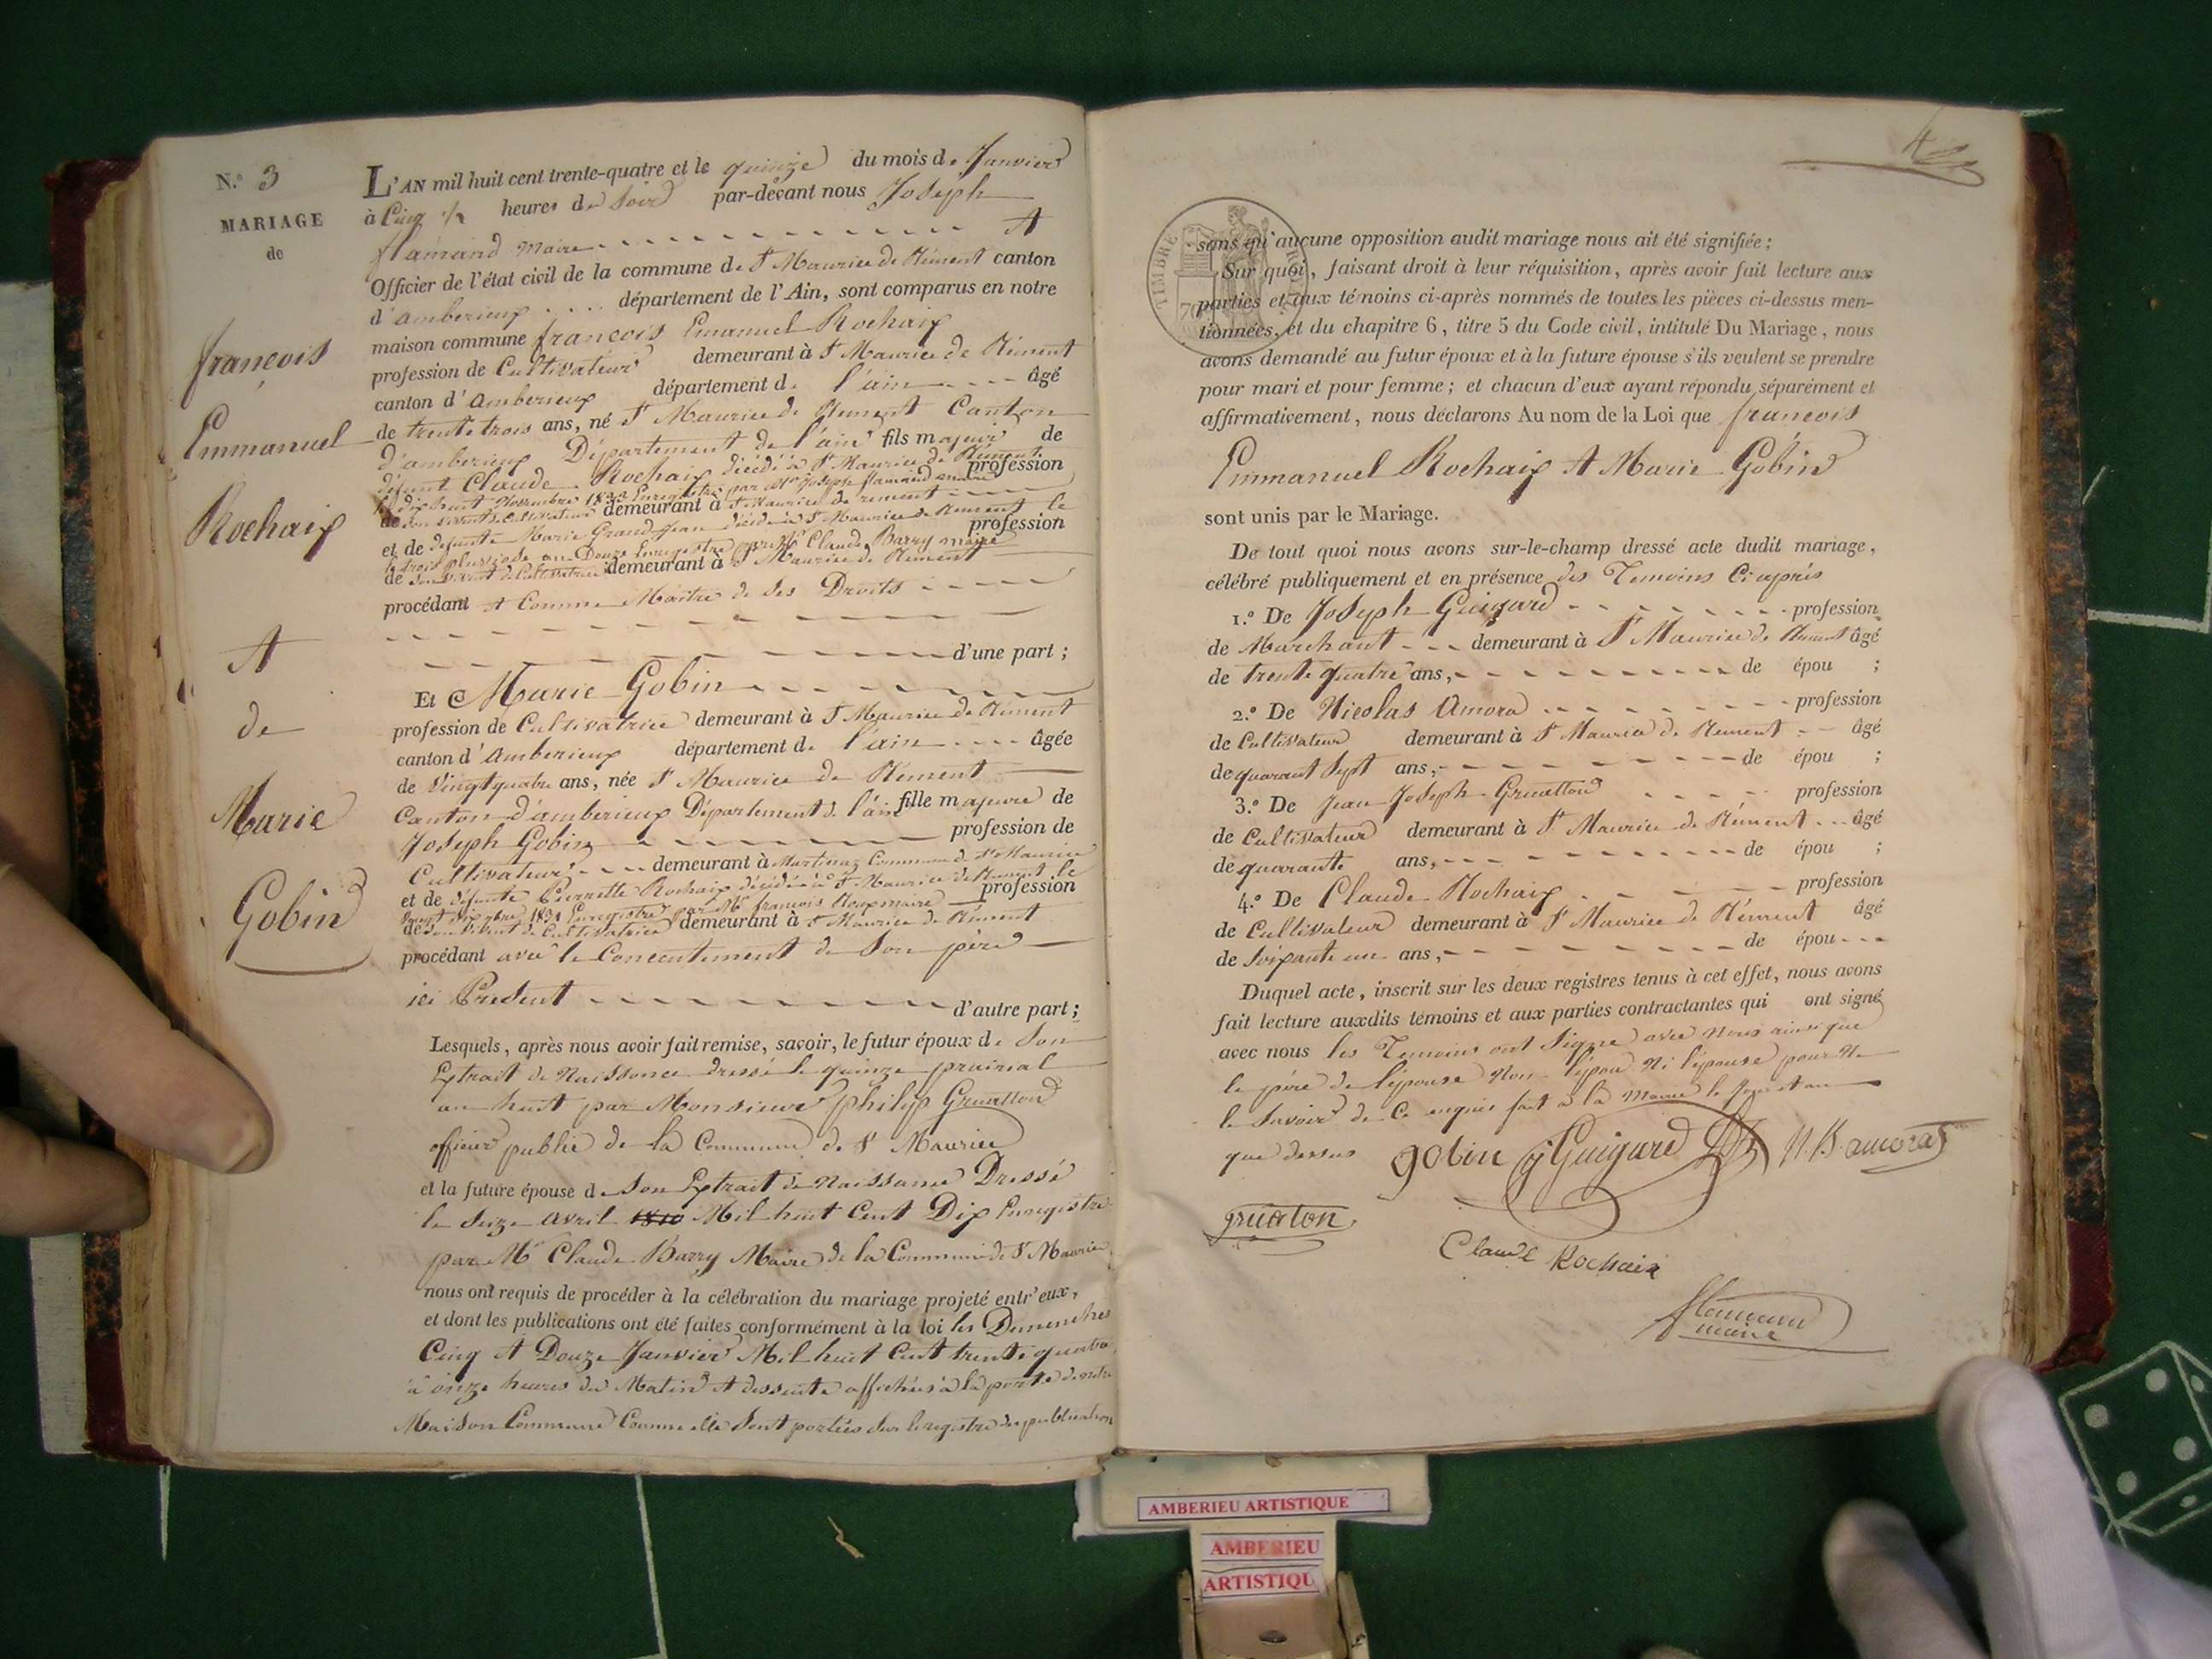 N.º 3
MARIAGE
de
françois
Emmanuel
Rochaix
et
de
Marie
Gobin
L'AN mil huit cent trente-quatre et le quinze du mois de Janvier
à Cinq heures du Soir par-devant nous Joseph
flamand maire et
Officier de l'état civil de la commune de St Maurice de Rément canton
d'amberieux département de l'Ain, sont comparus en notre
maison commune françois Emanuel Rochaix
profession de Cultivateur demeurant à St Maurice de Rément
canton d'amberieux département de l'ain âgé
de trente trois ans, né St Maurice de Rément Canton
d'amberieux Département de l'ain fils majeur de
défunt Claude Rochaix décédé à St Maurice de Rément profession
le dix huit Novembre Enregistré par Mr Joseph flamand maire
de son vivant de Cultivateur demeurant à St Maurice de rement
et de defunte Marie Grand Jean décédée à St Maurice de Rement le profession
trois pluviose an Douze Enregistré par Mr Claude Barry maire
de Son vivant de Cultivatrice demeurant à St Maurice de Rément
procédant et Comme Maitre de Ses Droits
d'une part ;
Et Marie Gobin
profession de Cultivatrice demeurant à St Maurice de Rément
canton d'amberieux département de l'ain âgée
de Vingt quatre ans, née St Maurice de Rément
Canton d'amberieux Département de l'ain fille majeure de
Joseph Gobin profession de
Cultivateur demeurant à Martinaz Commune de St Maurice
et de défunte Pierrette Rochaix décédée à St Maurice de Rément le profession
par Mr françois maire
de Son Vivant de Cultivatrice demeurant à St Maurice de Rément
procédant avec le Concentement de Son père
ici Présent d'autre part ;
Lesquels, après nous avoir fait remise, savoir, le futur époux de Son
Extrait de Naissance dressé le quinze prairial
an huit par Monsieur philip Gruatton
officier public de la Commune de St Maurice
et la future épouse de Son Extrait de Naissance Dressé
le Seize Avril 1810 Mil huit Cent Dix Enregistré
par Mr Claude Barry Maire de la Commune de St Maurice
nous ont requis de procéder à la célébration du mariage projeté entr'eux,
et dont les publications ont été faites conformément à la loi les Dimenches
Cinq et Douze Janvier Mil huit Cent trente quatre
à onze heures du Matin et dessuite affichés à la porte de notre
Maison Commune Comme elle Sont portées Sur le registre des publication
4
TIMBRE ROYAL
70
sans qu'aucune opposition audit mariage nous ait été signifiée ;
Sur quoi, faisant droit à leur réquisition, après avoir fait lecture aux
parties et aux témoins ci-après nommés de toutes les pièces ci-dessus men-
tionnées, et du chapitre 6, titre 5 du Code civil, intitulé Du Mariage, nous
avons demandé au futur époux et à la future épouse s'ils veulent se prendre
pour mari et pour femme ; et chacun d'eux ayant répondu séparément et
affirmativement, nous déclarons Au nom de la Loi que francois
Emmanuel Rochaix et Marie Gobin
sont unis par le Mariage.
De tout quoi nous avons sur-le-champ dressé acte dudit mariage,
célébré publiquement et en présence des Temoins Ci après
1.º De Joseph Guigard profession
de Marchant demeurant à St Maurice de Rément âgé
de trente quatre ans, de épou ;
2.º De Nicolas Amora profession
de Cultivateur demeurant à St Maurice de Rément âgé
de quarant Sept ans, de épou ;
3.º De Jean Joseph Gruatton profession
de Cultivateur demeurant à St Maurice de Rément âgé
de quarante ans, de épou ;
4.º De Claude Rochaix profession
de Cultivateur demeurant à St Maurice de Rément âgé
de Soixante un ans, de épou
Duquel acte, inscrit sur les deux registres tenus à cet effet, nous avons
fait lecture auxdits témoins et aux parties contractantes qui ont signé
avec nous les Temoins ont Signe avec nous ainsi que
le père de l'épouse Non l'épou Ni l'épouse pour Ne
le Savoir de Ce enquis fait à la Mairie le Jour et an
que dessus gobin J Guigard N. B. amora
gruaton
Claude Rochaix
flamand
maire
AMBERIEU ARTISTIQUE
AMBERIEU
ARTISTIQU